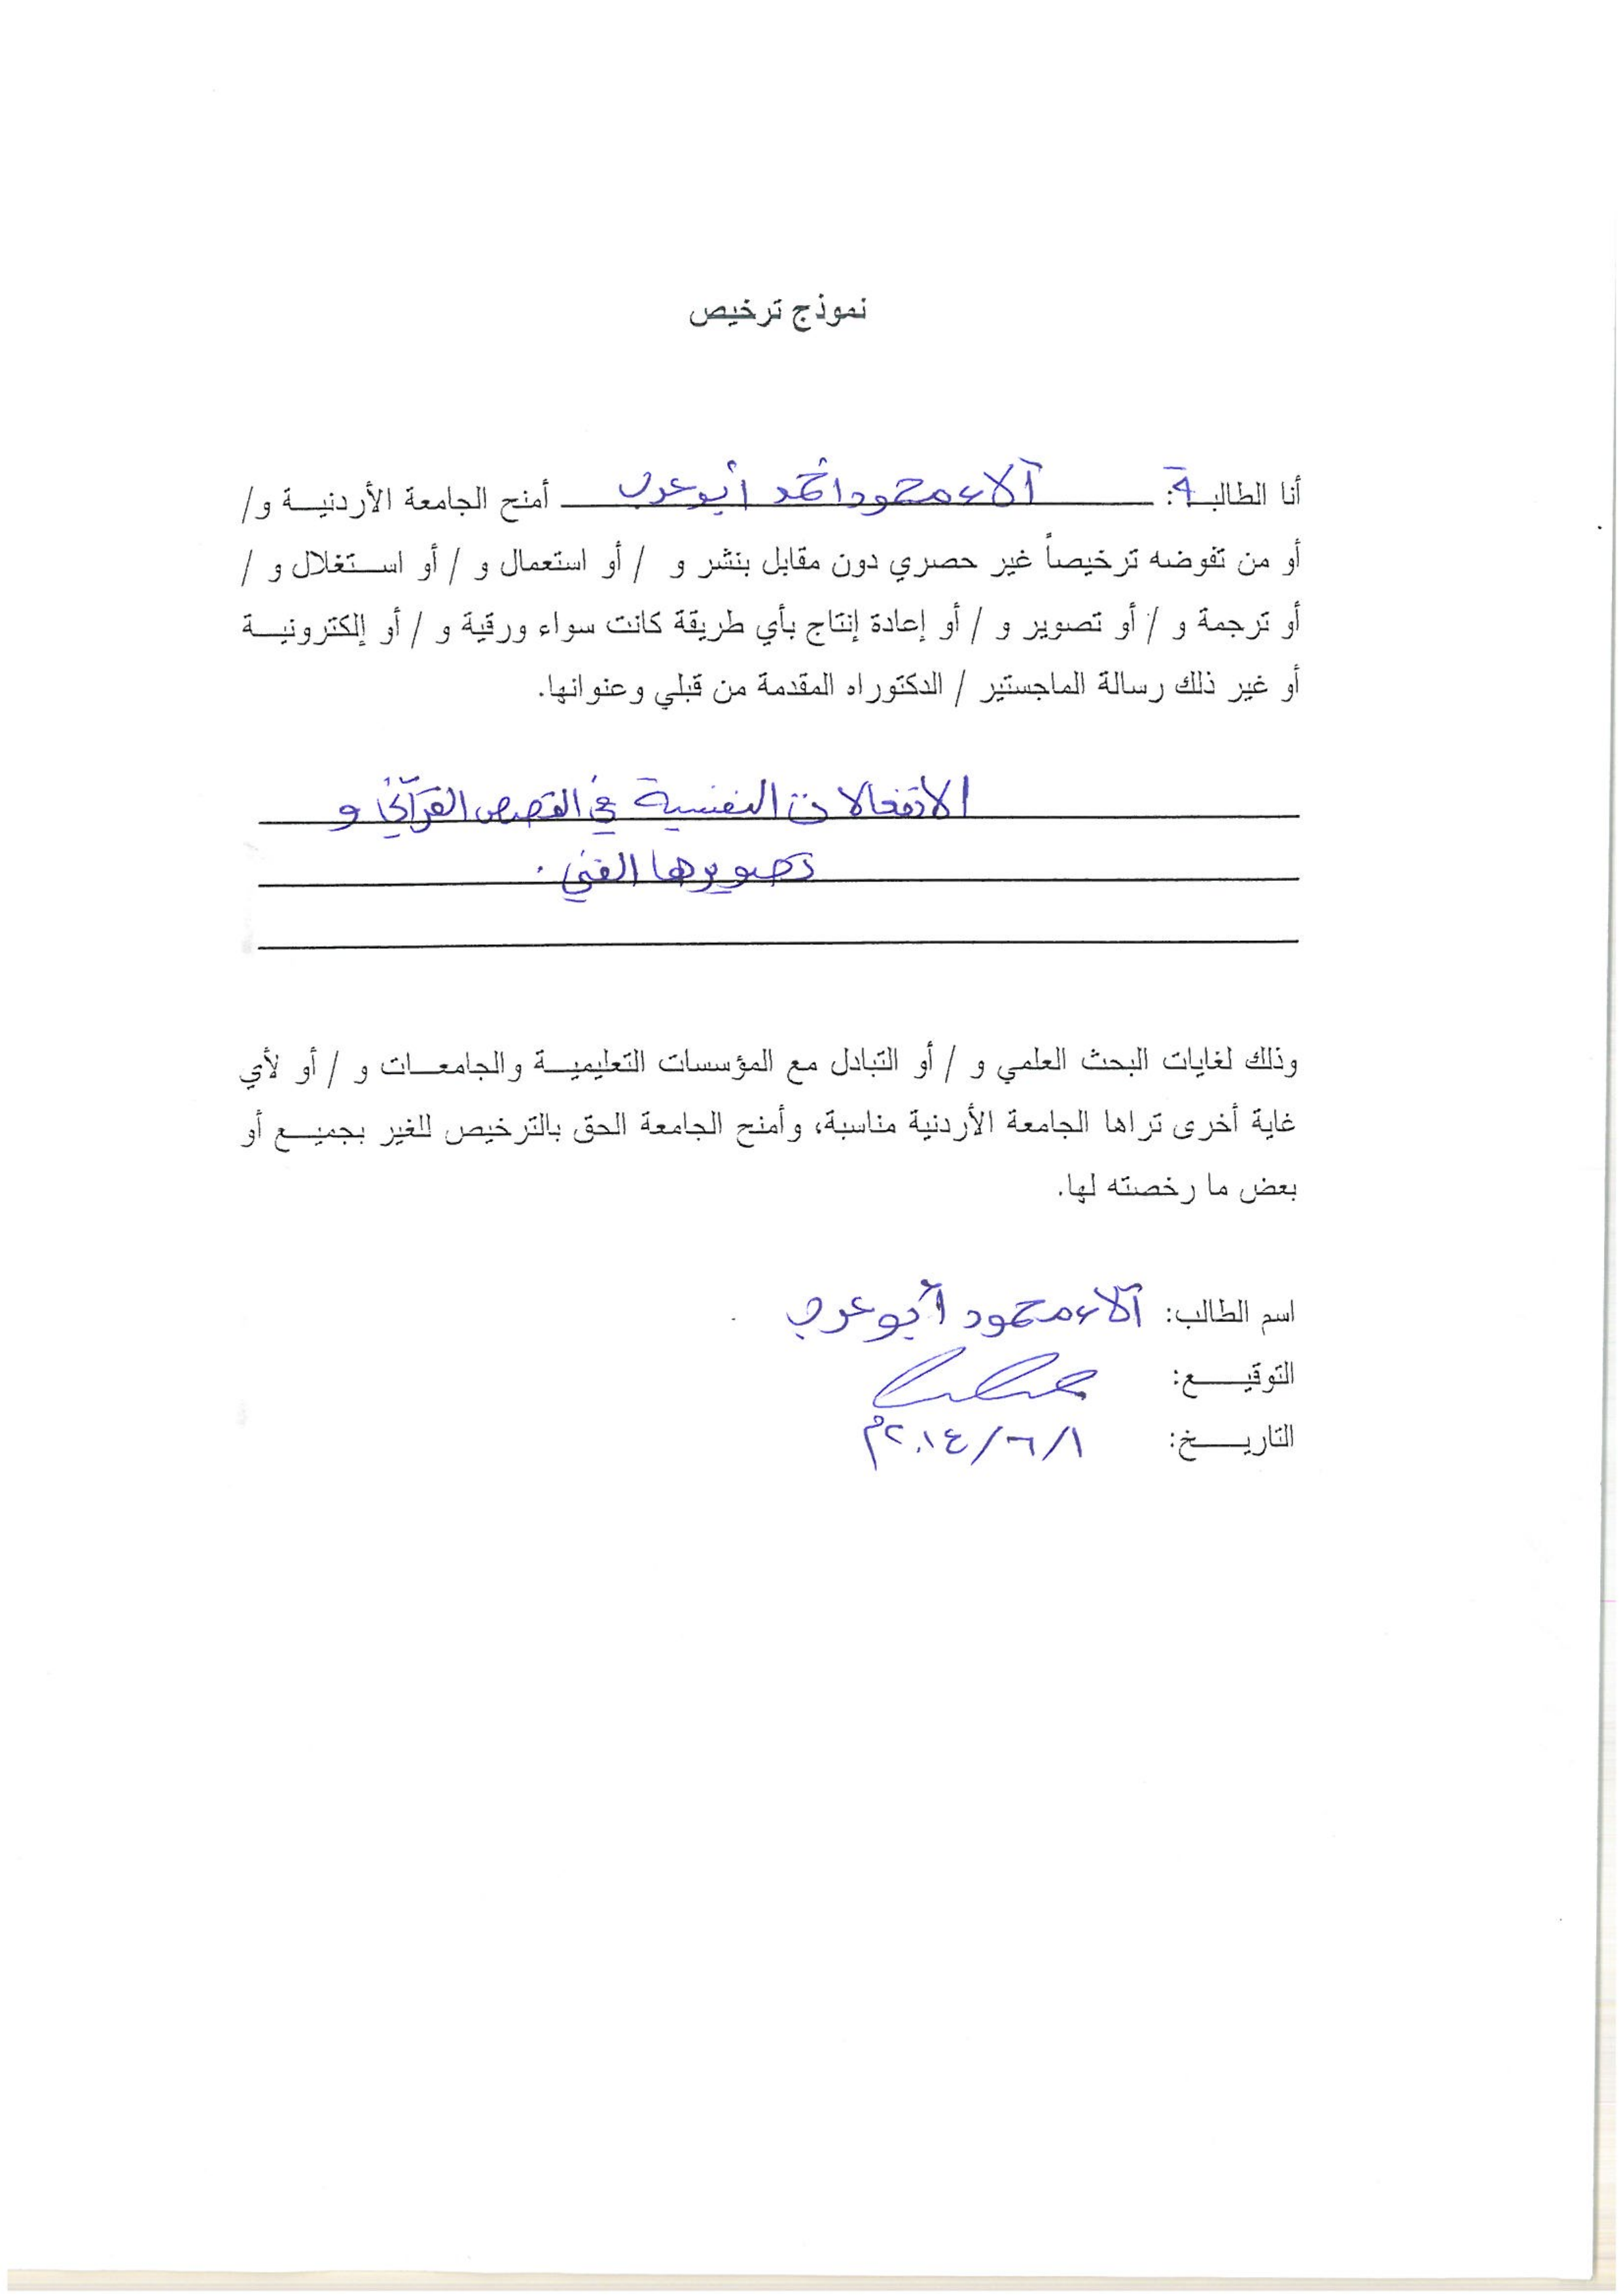 نموذج ترخيص
أنا الطالبة: آلاء محمود احمد أبو عرب أمنح الجامعة الأردنيـــة و/
أو من تفوضه ترخيصاً غير حصري دون مقابل بنشر و / أو استعمال و / أو استغلال و /
أو ترجمة و / أو تصوير و / أو إعادة إنتاج بأي طريقة كانت سواء ورقية و / أو إلكترونيـــة
أو غير ذلك رسالة الماجستير / الدكتوراه المقدمة من قبلي وعنوانها.
الانفعالات النفسية في القصص القرآني و
تصويرها الفني .
وذلك لغايات البحث العلمي و / أو التبادل مع المؤسسات التعليميـــة والجامعـــات و / أو لأي
غاية أخرى تراها الجامعة الأردنية مناسبة، وأمنح الجامعة الحق بالترخيص للغير بجميـــع أو
بعض ما رخصته لها.
اسم الطالب: آلاء محمود أبو عرب
التوقيـــع:
التاريـــخ: ١/٦/٢٠١٤م